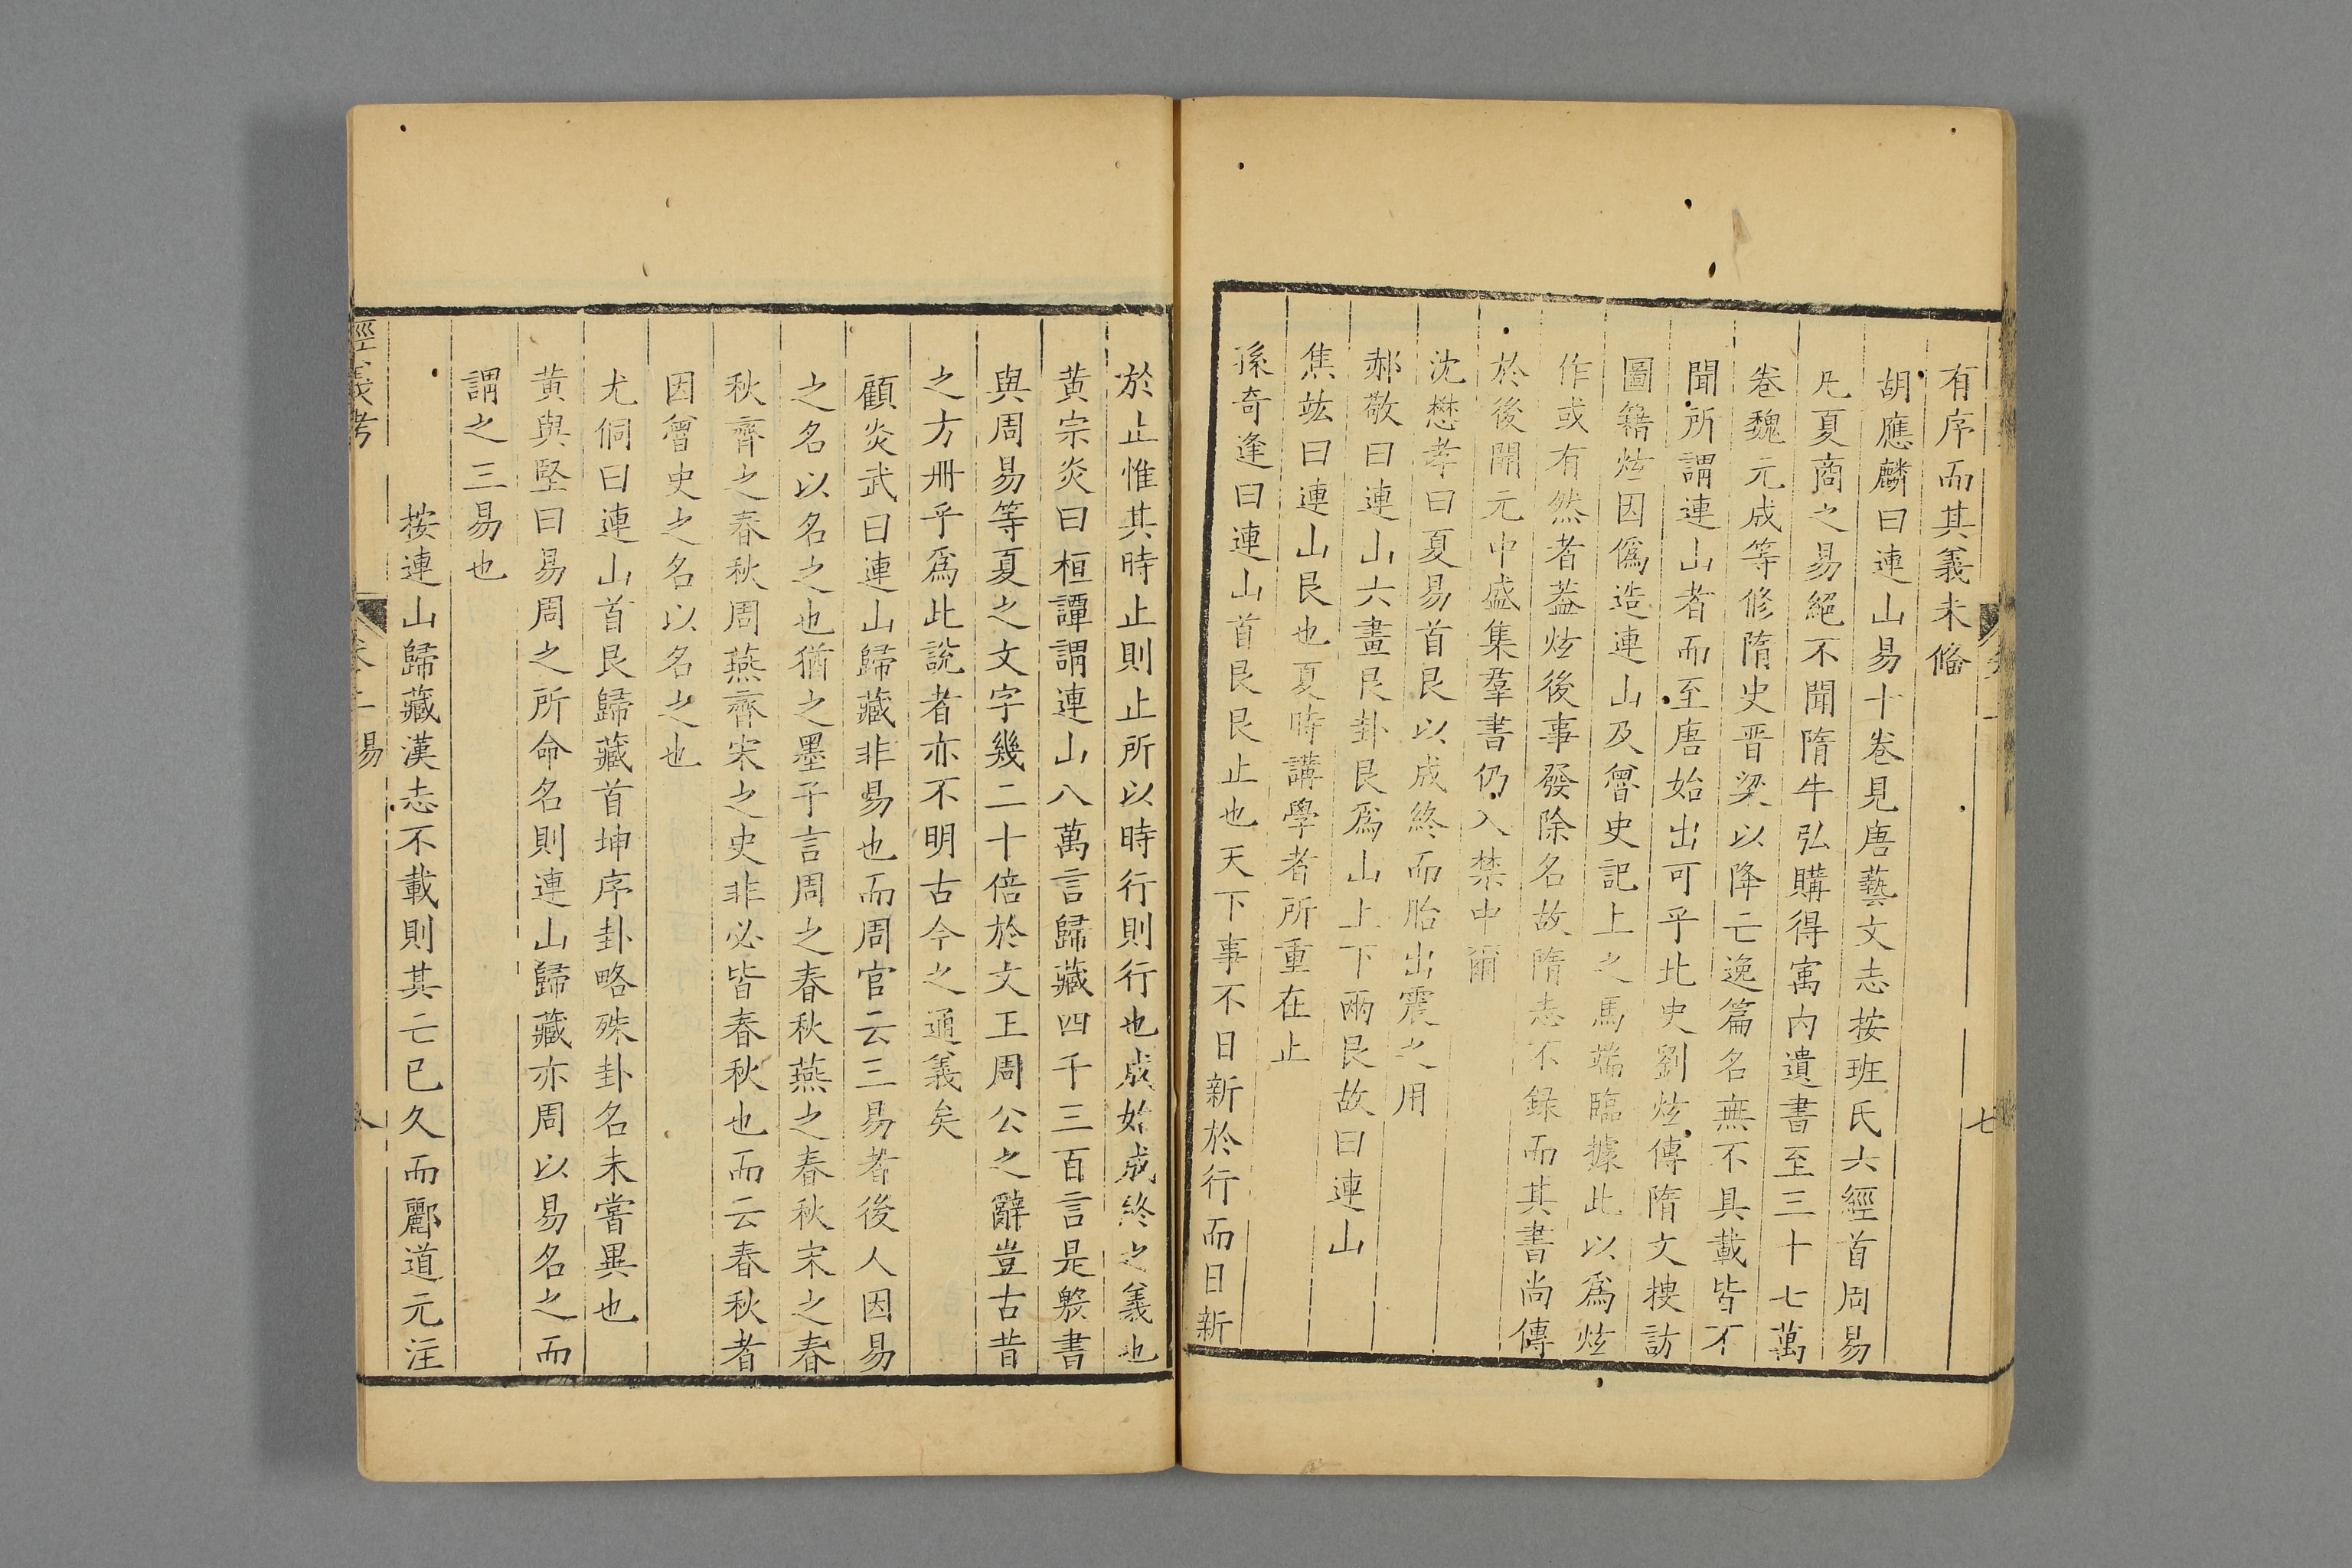 有序而其義未僃
胡應麟曰連山易十卷見唐藝文志按班氏六經首周易
凡夏商之易絕不聞隋牛弘購得寓內遺書至三十七萬
卷魏元成等修隋史晋梁以降亡逸篇名無不具載皆不
聞所謂連山者而至唐始出可乎北史劉炫傳隋文摟訪
圖籍炫因僞造連山及魯史記上之馬端臨據此以爲炫
作或有然者葢炫後事發除名故隋志不錄而其書尚傳
於後開元中盛集羣書仍入禁中爾
沈懋孝曰夏易首艮以成終而胎出震之用
郝敬曰連山六畫艮卦艮爲山上下兩艮故曰連山
焦竑曰連山艮也夏時講學者所重在止
孫奇逢曰連山首艮艮止也天下事不日新於行而日新
七
於止惟其時止則止所以時行則行也成始成終之義也
黄宗炎曰桓譚謂連山八萬言歸藏四千三百言是殷書
與周易等夏之文字幾二十倍於文王周公之辭豈古昔
之方冊乎爲此說者亦不明古今之通義矣
顧炎武曰連山歸藏非易也而周官云三易者後人因易
之名以名之也猶之墨子言周之春秋燕之春秋宋之春
秋齊之春秋周燕齊宋之史非必皆春秋也而云春秋者
因魯史之名以名之也
尤侗曰連山首艮歸藏首坤序卦略殊卦名未嘗異也
黄與堅曰易周之所命名則連山歸藏亦周以易名之而
謂之三易也
按連山歸藏漢志不載則其亡已久而酈道元注
經義考 卷二 易 八